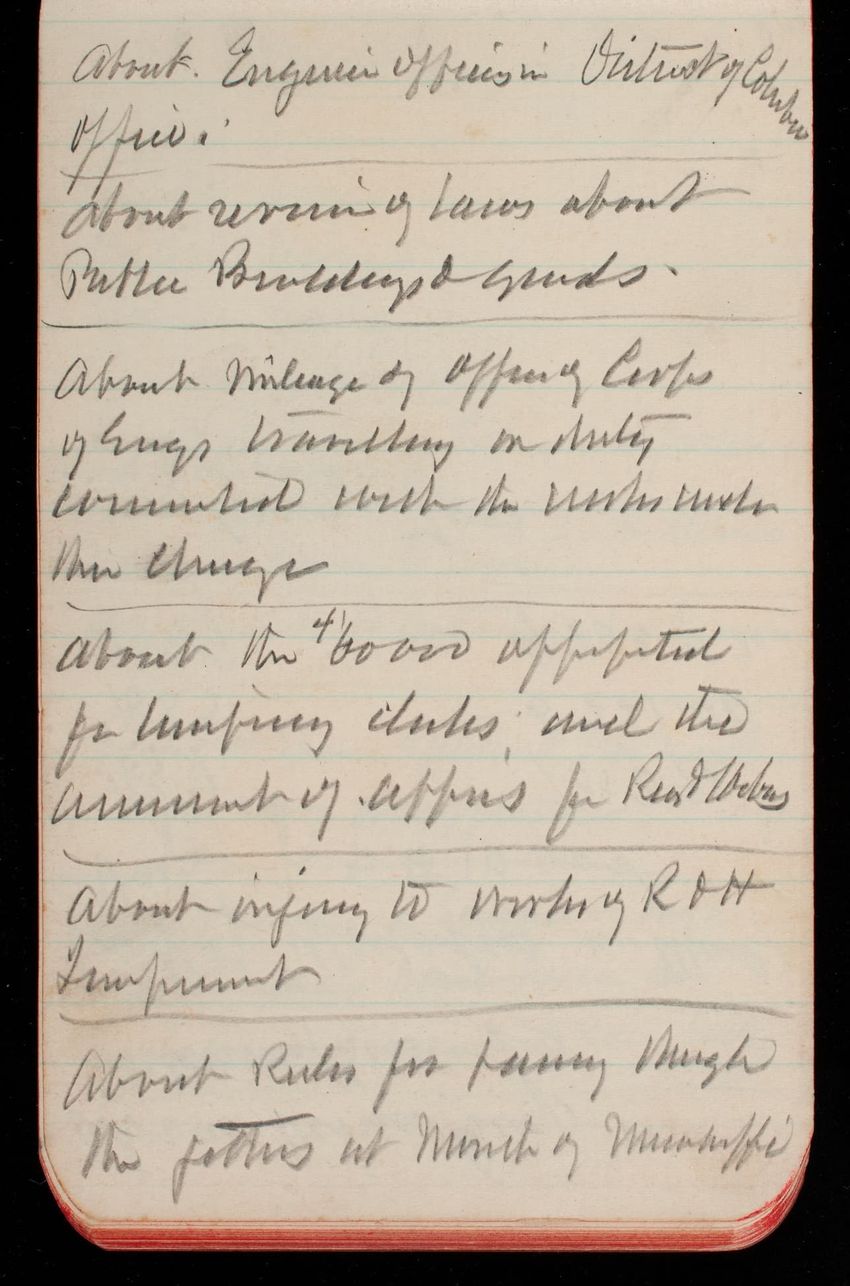 About Engineer Officers in District of Columbia
Office.
About revision of laws about
Public Buildings & grounds.
About Mileage of Officers of Corps
of Engrs travelling on duty
connected with the works under
their charge
About the
for temporary clerks and the
amount of for
About injury to works of R & H
Improvement
About Rules for passing through
the jetties at Mouth of Mississippi